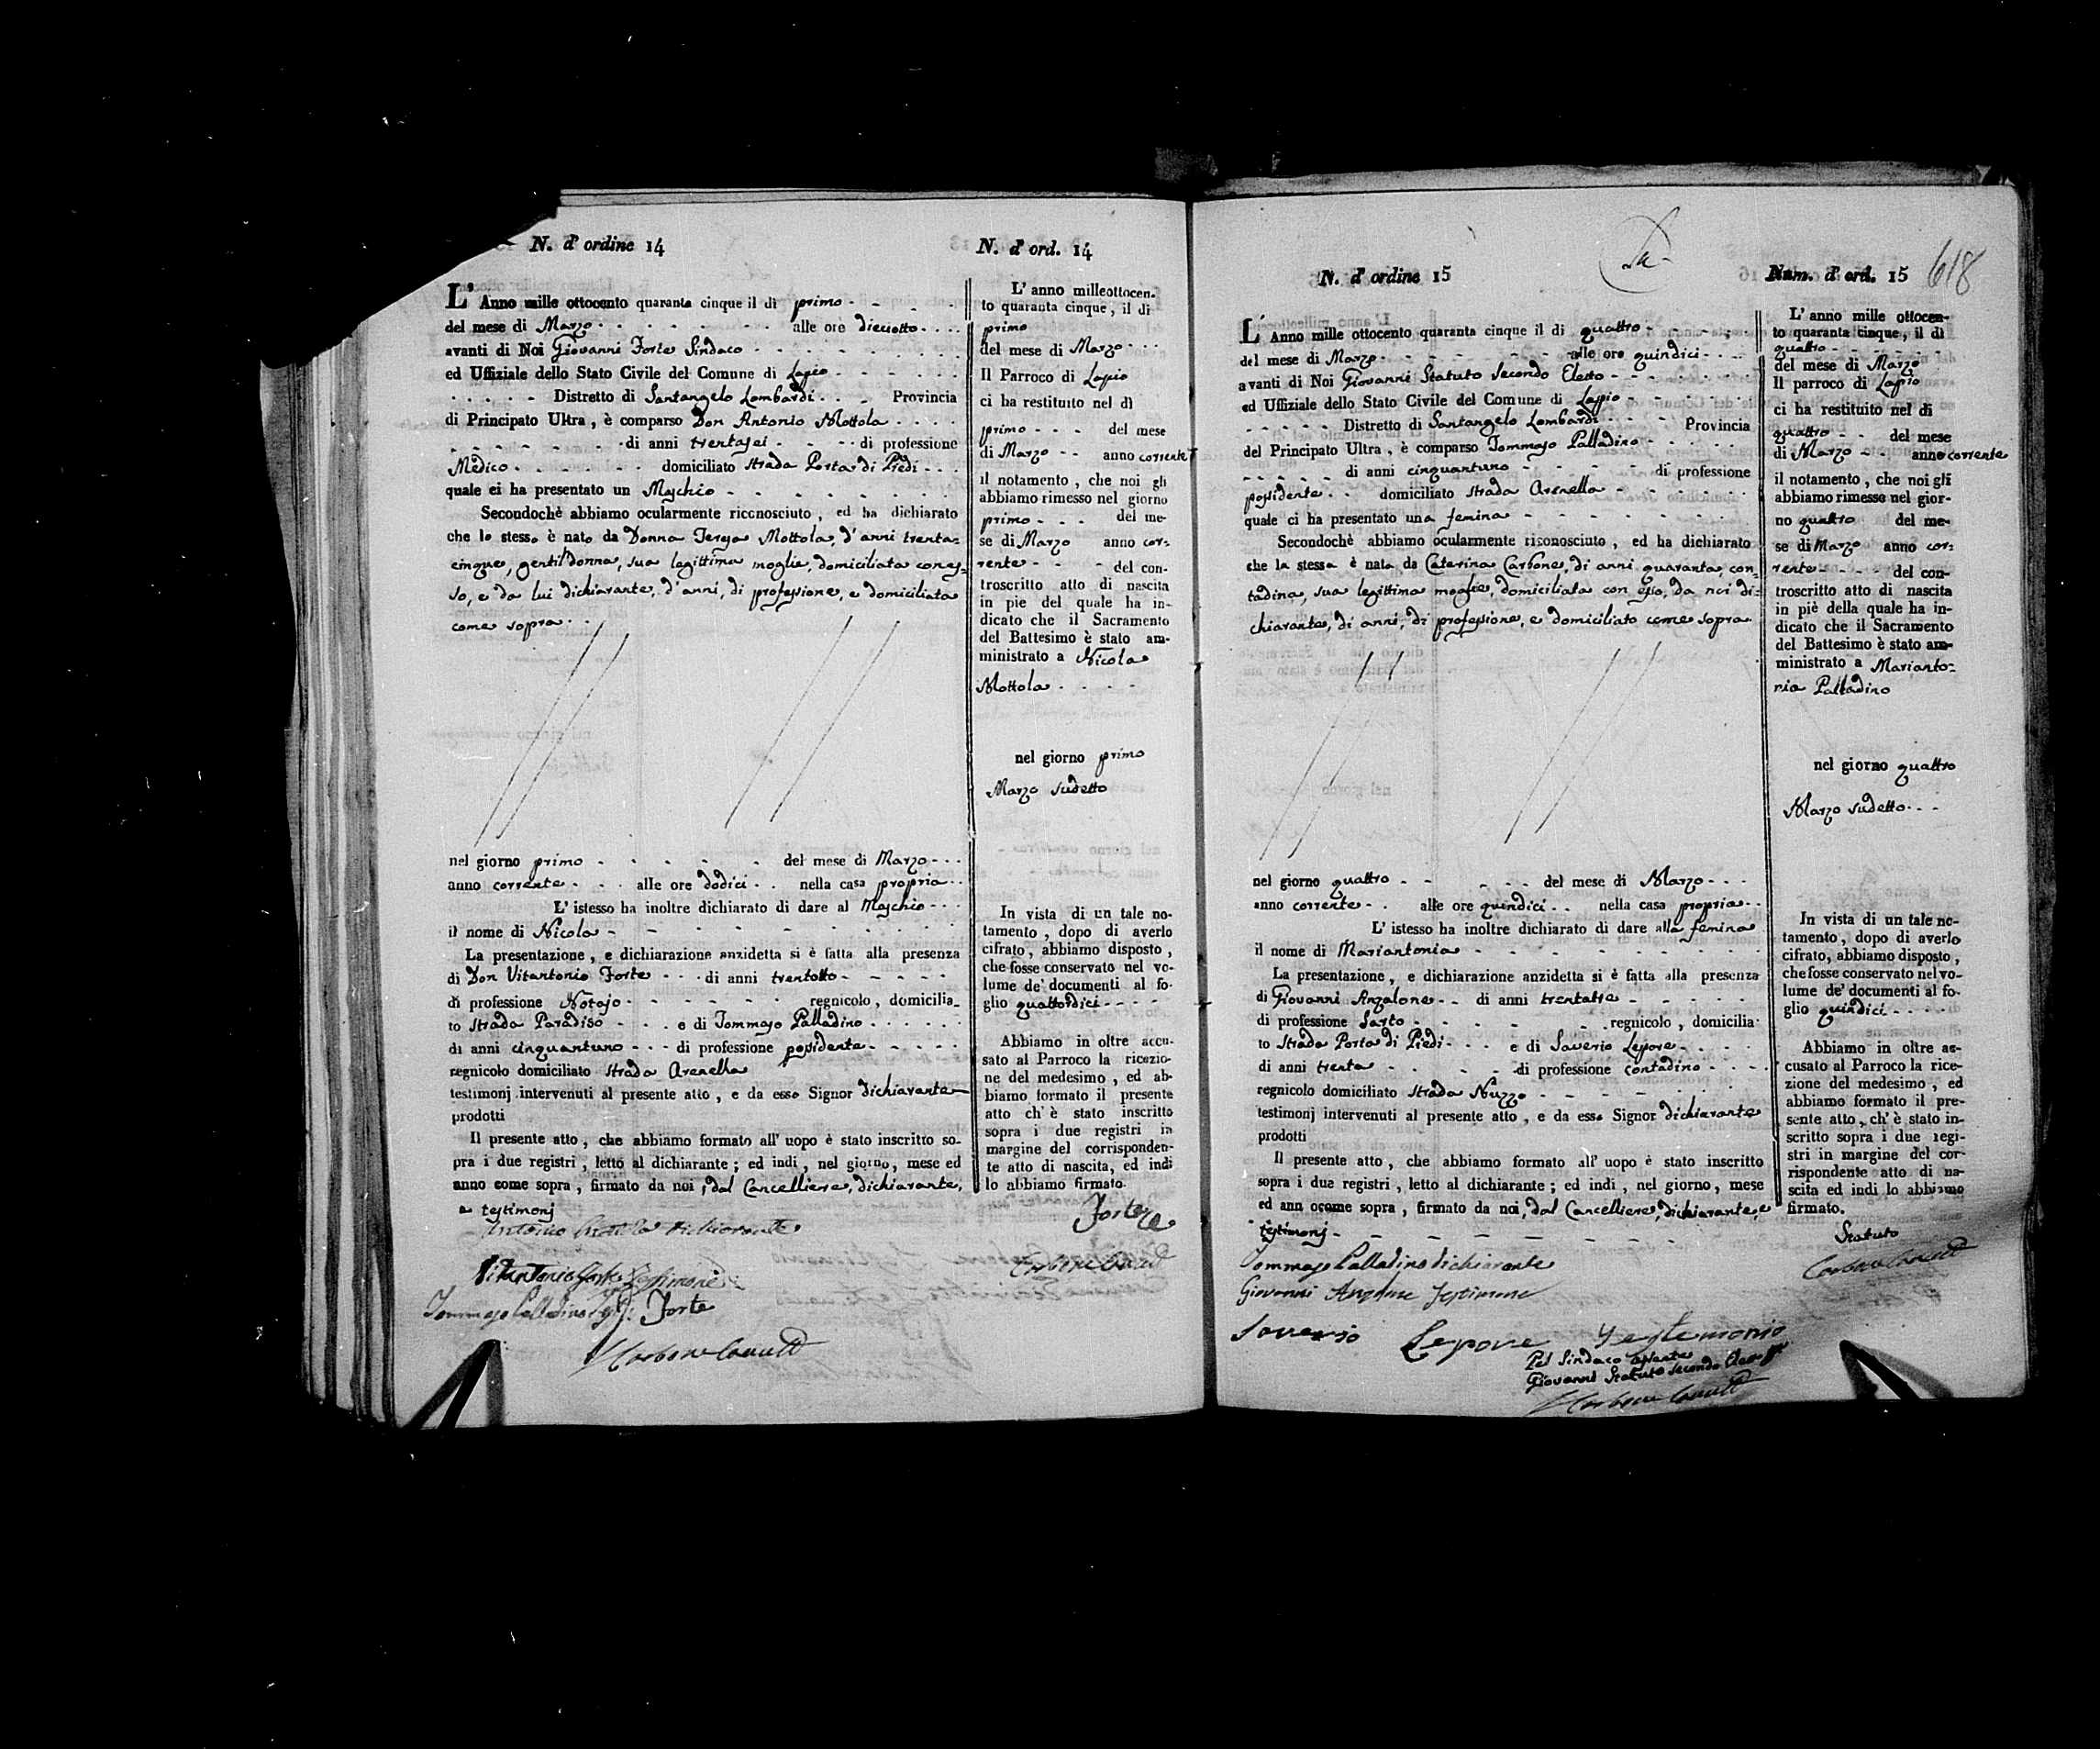 N. d' ordine 14
L' Anno mille ottocento quaranta cinque il dì primo
del mese di Marzo alle ore dieciotto
avanti di Noi Giovanni Forte Sindaco
ed Uffiziale dello Stato Civile del Comune di Lapio
Distretto di Santangelo Lombardi Provincia
di Principato Ultra, è comparso Don Antonio Mottola
di anni trentasei di professione
Medico domiciliato Strada Porta di Piedi
quale ci ha presentato un Maschio
Secondochè abbiamo ocularmente riconosciuto, ed ha dichiarato
che lo stesso è nato da Donna Teresa Mottola, d'anni trenta=
cinque, gentildonna, sua legittima moglie, domiciliata con es=
so, e da lui dichiarante, d'anni, di professione, e domiciliata
come sopra
nel giorno primo del mese di Marzo
anno corrente alle ore dodici nella casa propria
L' istesso ha inoltre dichiarato di dare al Maschio
il nome di Nicola
La presentazione, e dichiarazione anzidetta si è fatta alla presenza
di Don Vitantonio Forte di anni trentotto
di professione Notajo regnicolo, domicilia-
to Strada Paradiso e di Tommaso Palladino
di anni cinquantuno di professione possidente
regnicolo domiciliato Strada Arenella
testimonj intervenuti al presente atto, e da esso Signor dichiarante
prodotti
Il presente atto, che abbiamo formato all' uopo è stato inscritto so-
pra i due registri, letto al dichiarante; ed indi, nel giorno, mese ed
anno come sopra, firmato da noi, dal Cancelliere, dichiarante,
e testimonj
Antonio Mottola dichiarante
Vitantonio Forte Testimone
Tommaso Palladino Forte
N. d' ord. 14
L' anno milleottocen-
to quaranta cinque, il dì
primo
del mese di Marzo
Il Parroco di Lapio
ci ha restituito nel dì
primo del mese
di Marzo anno corrente
il notamento, che noi gli
abbiamo rimesso nel giorno
primo del me-
se di Marzo anno cor=
rente del con-
troscritto atto di nascita
in pie del quale ha in-
dicato che il Sacramento
del Battesimo è stato am-
ministrato a Nicola
Mottola
nel giorno primo
Marzo sudetto
In vista di un tale no-
tamento, dopo di averlo
cifrato, abbiamo disposto,
che fosse conservato nel vo-
lume de' documenti al fo-
glio quattordici
Abbiamo in oltre accu-
sato al Parroco la ricezio-
ne del medesimo, ed ab-
biamo formato il presente
atto ch' è stato inscritto
sopra i due registri in
margine del corrisponden-
te atto di nascita, ed indi
lo abbiamo firmato.
Forte
N. d' ordine 15
L' Anno mille ottocento quaranta cinque il di quattro
del mese di Marzo alle ore quindici
avanti di Noi Giovanni Statuto Secondo Eletto
ed Uffiziale dello Stato Civile del Comune di Lapio
Distretto di Santangelo Lombardi Provincia
del Principato Ultra, è comparso Tommaso Palladino
di anni cinquantuno di professione
possidente domiciliato Strada Arenella
quale ci ha presentato una femina
Secondochè abbiamo ocularmente riconosciuto, ed ha dichiarato
che la stessa è nata da Caterina Carbone, di anni quaranta, con=
tadina, sua legittima moglie, domiciliata con esso, da noi di=
chiarante, di anni, di professione, e domiciliato come sopra
nel giorno quattro del mese di Marzo
anno corrente alle ore quindici nella casa propria
L' istesso ha inoltre dichiarato di dare alla femina
il nome di Mariantonia
La presentazione, e dichiarazione anzidetta si è fatta alla presenza
di Giovanni Anzalone di anni trentatre
di professione Sarto regnicolo, domicilia-
to Strada Porta di Piedi e di Saverio Lepore
di anni trenta di professione contadino
regnicolo domiciliato Strada Nuzzo
testimonj intervenuti al presente atto, e da esso Signor dichiarante
prodotti
Il presente atto, che abbiamo formato all' uopo è stato inscritto
sopra i due registri, letto al dichiarante; ed indi, nel giorno, mese
ed ann ocome sopra, firmato da noi, dal Cancelliere, dichiarante, e
testimonj
Tommaso Palladino dichiarante
Giovanni Anzalone Testimone
Saverio Lepore Testemonio
Pel Sindaco assente
Giovanni Statuto Secondo Eletto
Num. d' ord. 15
618
L' anno mille ottocen-
to quaranta cinque, il dì
quattro
del mese di Marzo
Il parroco di Lapio
ci ha restituito nel di
quattro del mese
di Marzo anno corrente
il notamento, che noi gli
abbiamo rimesso nel gior-
no quattro del me-
se di Marzo anno cor=
rente del con-
troscritto atto di nascita
in piè della quale ha in-
dicato che il Sacramento
del Battesimo è stato am-
ministrato a Marianto=
nia Palladino
nel giorno quattro
Marzo sudetto
In vista di un tale no-
tamento, dopo di averlo
cifrato, abbiamo disposto,
che fosse conservato nel vo-
lume de' documenti al fo-
glio quindici
Abbiamo in oltre ac-
cusato al Parroco la rice-
zione del medesimo, ed
abbiamo formato il pre-
sente atto, ch' è stato in-
scritto sopra i due regi-
stri in margine del cor-
rispondente atto di na-
scita ed indi lo abbiamo
firmato.
Statuto